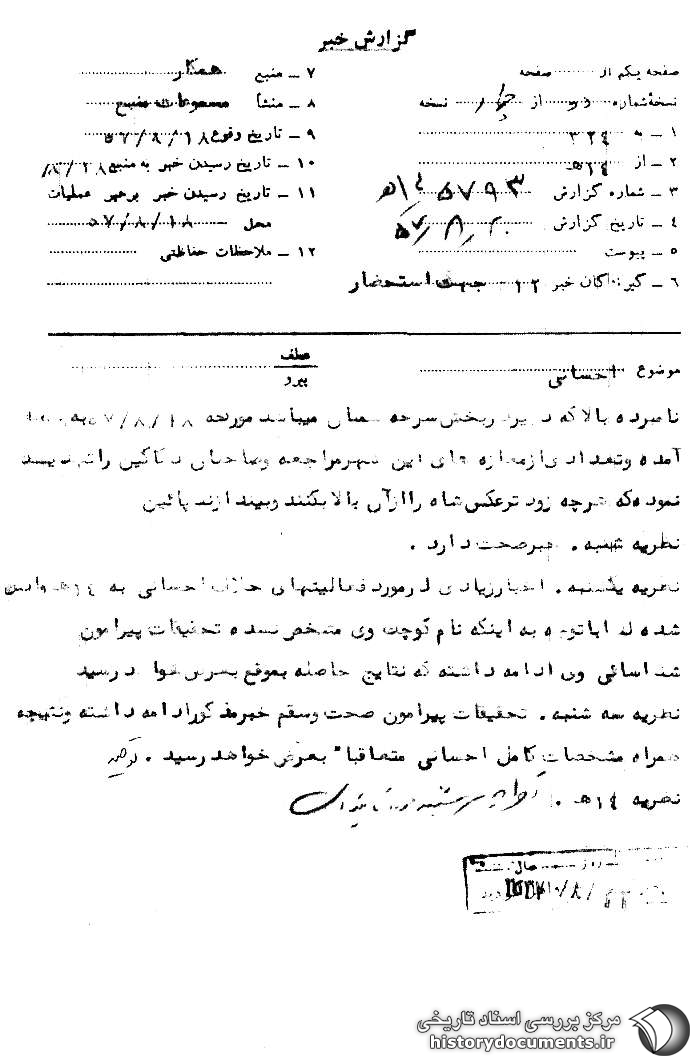 گزارش خبر
صفحه یکم از صفحه
نسخهٔ شماره از نسخه
۱ - به ۳۲۴
۲ - از ۱۴ه
۳ - شماره گزارش ۵۷۹۳ / ۱۴ه
۴ - تاریخ گزارش
۵ - پیوست
۶ - گیرندگان خبر ۱۲ جهت استحضار
۷ - منبع همکار
۸ - منشأ مسموعات منبع
۹ - تاریخ وقوع ۵۷/۸/۱۸
۱۰ - تاریخ رسیدن خبر به منبع
۱۱ - تاریخ رسیدن خبر برهبر عملیات
محل ۵۷/۸/۱۸
۱۲ - ملاحظات حفاظتی
موضوع احسانی
عطف
پیرو
نامبرده بالا که دبیر بخش سرخه سمنان میباشد مورخه ۵۷/۸/۱۸ به
آمده و تعدادی از مغازه های این شهر مراجعه و صاحبان دکاکین را تهدید
نموده که هرچه زودتر عکس شاه را از آن بالا بکنند و بیندازند پائین
نظریه شنبه . خبر صحت دارد .
نظریه یکشنبه . اخبار زیادی در مورد فعالیتهای خلاف احسانی به ۱۴ه واصل
شده که با توجه به اینکه نام کوچک وی مشخص نشده تحقیقات پیرامون
شناسائی وی ادامه داشته که نتایج حاصله بموقع بعرض خواهد رسید
نظریه سه شنبه . تحقیقات پیرامون صحت و سقم خبر مذکور ادامه داشته و نتیجه
همراه مشخصات کامل احسانی متعاقبا" بعرض خواهد رسید .
نظریه ۱۴ه . نظریه سه‌شنبه مورد تائید است
مرکز بررسی اسناد تاریخی
historydocuments.ir